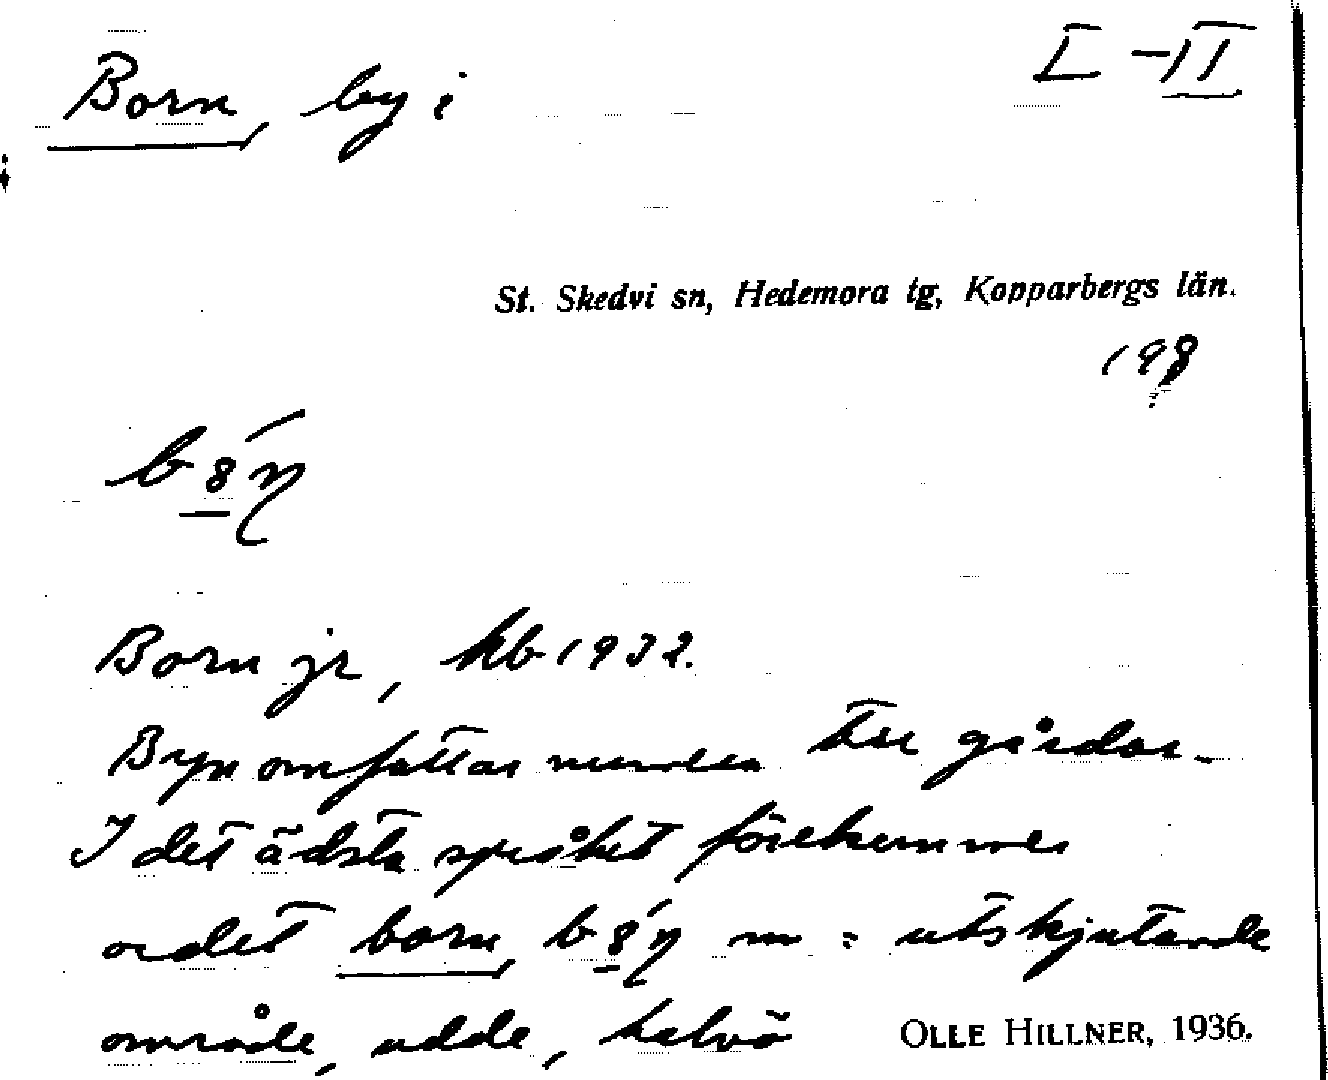 Born, by i
I-II
St. Skedvi sn, Hedemora tg, Kopparbergs län.
198
Born jr, kb 1932.
Byn omfattar numera tre gårdar.
I det äldsta språket förekommer
ordet born, m = utskjutande
område, udde, halvö
OLLE HILLNER, 1936.